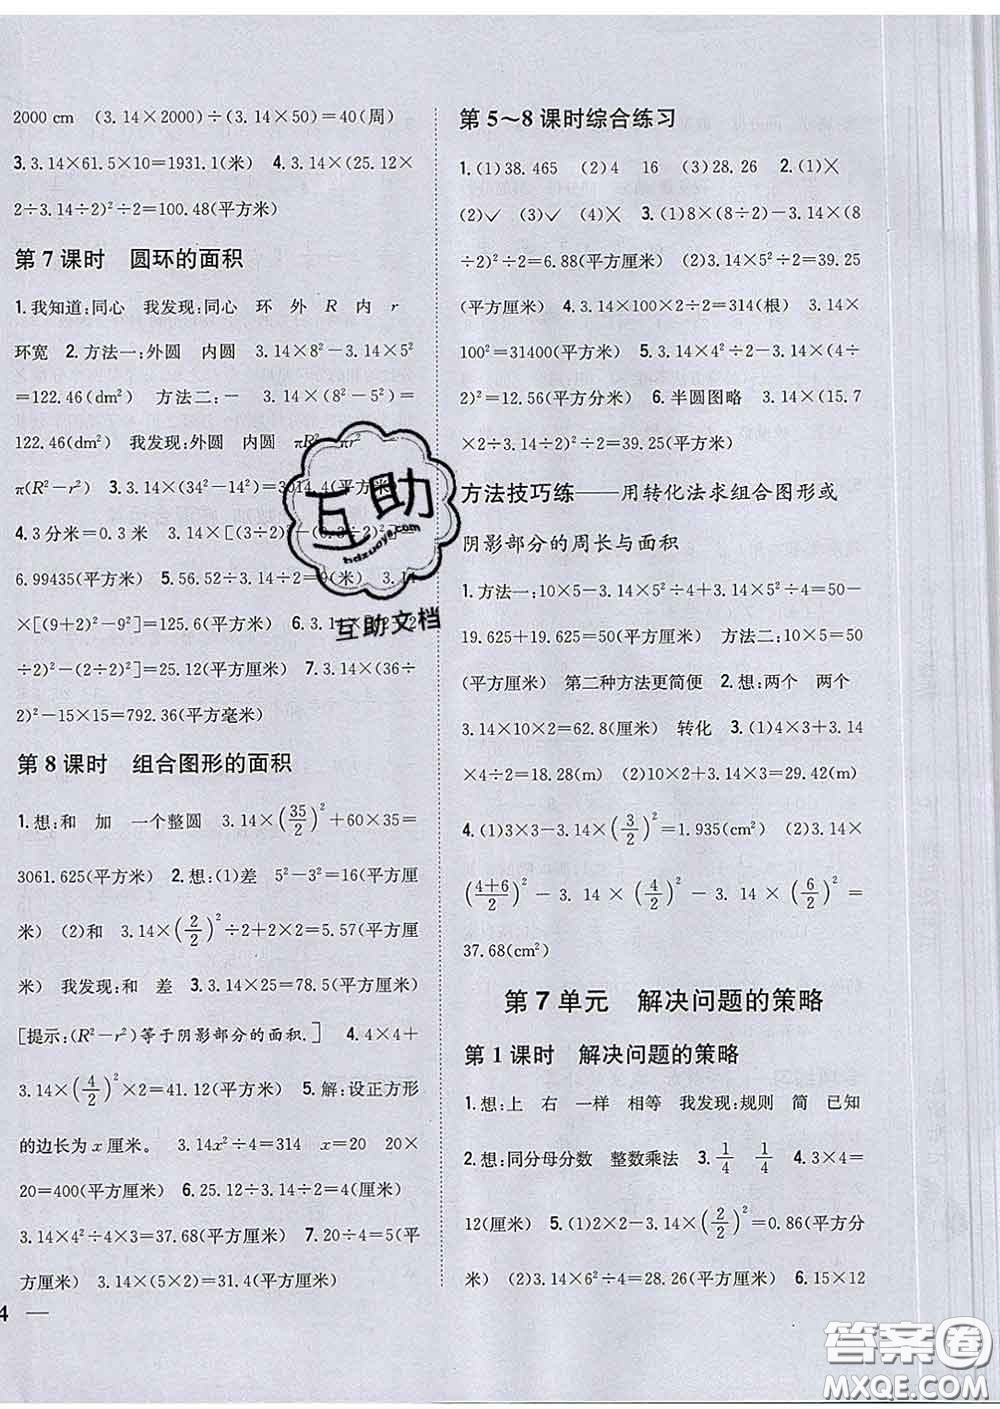 2000 cm (3.14×2000)÷(3.14×50)=40(周)
3.3.14×61.5×10=1931.1(米) 4.3.14×(25.12×
2÷3.14÷2)²÷2=100.48(平方米)
第7课时 圆环的面积
1.我知道:同心 我发现:同心 环 外 R 内 r
环宽 2.方法一:外圆 内圆 3.14×8²-3.14×5²
=122.46(dm²) 方法二:- 3.14×(8²-5²)=
122.46(dm²) 我发现:外圆 内圆 πR²-πr²
π(R²-r²) 3.3.14×(34²-14²)=3014.4(平方米)
4.3分米=0.3米 3.14×[(3-0.3÷2)²]=
6.99435(平方米) 5.56.52÷3.14÷2=9(米) 3.14
×[(9+2)²-9²]=125.6(平方米) 6.3.14×
÷2)²-(2÷2)²]=25.12(平方厘米) 7.3.14×(36÷
2)²-15×15=792.36(平方毫米)
第8课时 组合图形的面积
1.想:和 加 一个整圆 3.14×(35/2)²+60×35=
3061.625(平方米) 2.想:(1)差 5²-3²=16(平方厘
米) (2)和 3.14×(2/2)²÷2+2×2=5.57(平方厘
米) 我发现:和 差 3.3.14×25=78.5(平方厘米)
[提示:(R²-r²)等于阴影部分的面积.] 4.4×4+
3.14×(4/2)²×2=41.12(平方米) 5.解:设正方形
的边长为x厘米。 3.14x²÷4=314 x=20 20×
20=400(平方厘米) 6.25.12÷3.14÷2=4(厘米)
3.14×4²÷4×3=37.68(平方米) 7.20÷4=5(平
方厘米) 3.14×(5×2)=31.4(平方厘米)
4
第5~8课时综合练习
1.(1)38.465 (2)4 16 (3)28.26 2.(1)×
(2)✓ (3)✓ (4)× 3.(1)8×(8÷2)-3.14×(8
÷2)²÷2=6.88(平方厘米) (2)3.14×5²÷2=39.25
(平方厘米) 4.3.14×100×2÷2=314(根) 3.14×
100²=31400(平方厘米) 5.3.14×4²÷2-3.14×(4÷
2)²=12.56(平方分米) 6.半圆图略 3.14×(15.7
×2÷3.14÷2)²÷2=39.25(平方米)
方法技巧练——用转化法求组合图形或
阴影部分的周长与面积
1.方法一:10×5-3.14×5²÷4+3.14×5²÷4=50-
19.625+19.625=50(平方厘米) 方法二:10×5=50
(平方厘米) 第二种方法更简便 2.想:两个 两个
3.14×10×2=62.8(厘米) 转化 3.(1)4×3+3.14
×4÷2=18.28(m) (2)10×2+3.14×3=29.42(m)
4.(1)3×3-3.14×(3/2)²=1.935(cm²) (2)3.14×
((4+6)/2)²-3.14×(4/2)²-3.14×(6/2)²=
37.68(cm²)
第7单元 解决问题的策略
第1课时 解决问题的策略
1.想:上 右 一样 相等 我发现:规则 简 已知
2.想:同分母分数 整数乘法 3.1/4 1/4 4.3×4=
12(厘米) 5.(1)2×2-3.14×(2/2)²=0.86(平方分
米) (2)3.14×6²÷4=28.26(平方厘米) 6.15×12
互助
hdzuoye.com
互助文档
答案圈
MXQE.COM